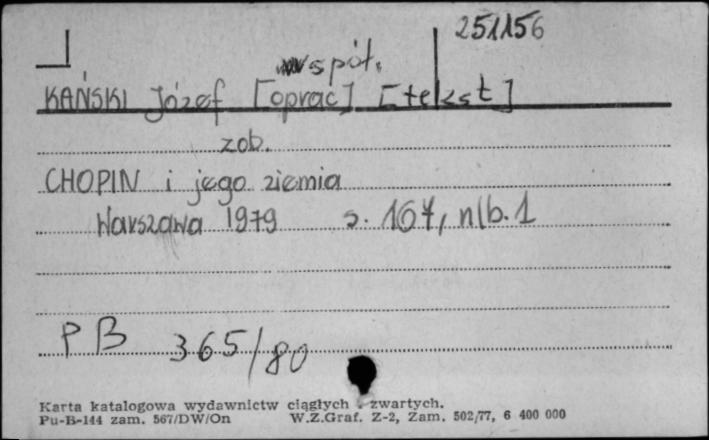 251156
współ.
KAŃSKI Józef [oprac] [tekst]
zob.
CHOPIN i jego ziemia
Warszawa 1979 s. 167, nlb. 1
PB 365/80
Karta katalogowa wydawnictw ciągłych i zwartych.
Pu-B-144 zam. 567/DW/On W.Z.Graf. Z-2, Zam. 502/77, 6 400 000